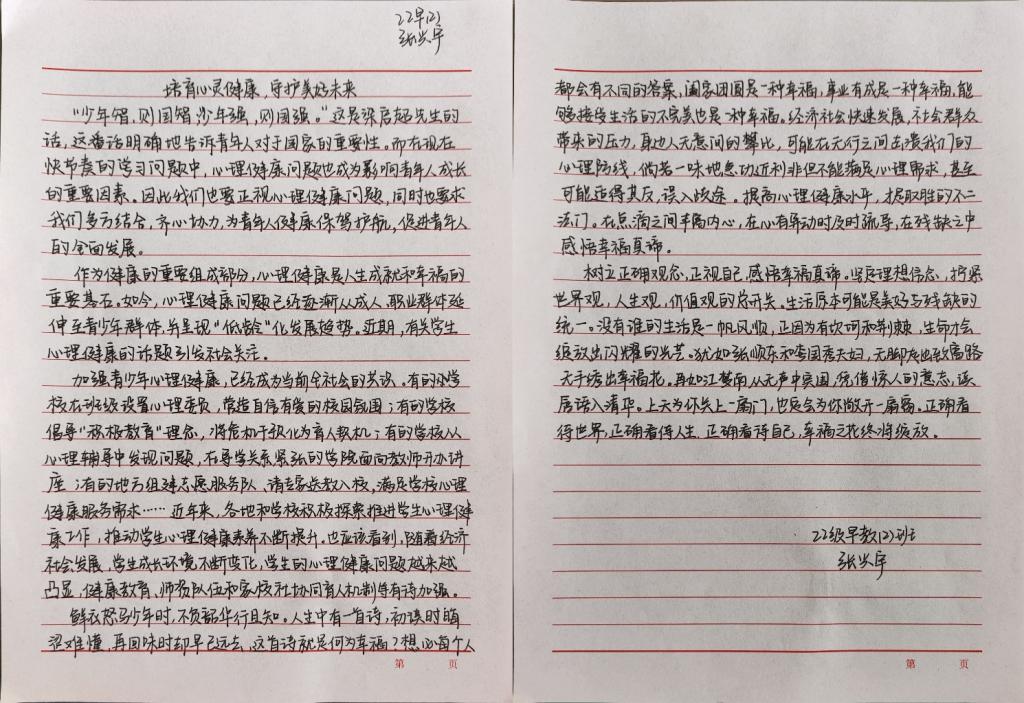 22早(2)
张紫宇
培育心灵健康，守护美好未来
“少年智，则国智，少年强，则国强。”这是梁启超先生的
话，这番话明确地告诉青年人对于国家的重要性。而在现在
快节奏的学习问题中，心理健康问题也成为影响青年人成长
的重要因素。因此我们也要正视心理健康问题，同时也要求
我们多方结合，齐心协力，为青年人健康保驾护航，促进青年人
的全面发展。
作为健康的重要组成部分，心理健康是人生成就和幸福的
重要基石。如今，心理健康问题已经逐渐从成人、职业群体延
伸至青少年群体，并呈现“低龄”化发展趋势。近期，有关学生
心理健康的话题引发社会关注。
加强青少年心理健康，已经成为当前全社会的共识。有的中小学
校在班级设置心理委员，营造自信有爱的校园氛围；有的学校
倡导“积极教育”理念，将危机干预化为育人契机；有的学校从
心理辅导中发现问题，在导学关系紧张的学院面向教师开办讲
座；有的地方组建志愿服务队、请专家送教入校，满足学校心理
健康服务需求……近年来，各地和学校积极探索推进学生心理健
康工作，推动学生心理健康素养不断提升。也应该看到，随着经济
社会发展，学生成长环境不断变化，学生的心理健康问题越来越
凸显，健康教育、师资队伍和家校社协同育人机制等有待加强。
鲜衣怒马少年时，不负韶华行且知。人生中有一首诗，初读时晦
涩难懂，再回味时却早已远去，这首诗就是何为幸福？想必每个人
都会有不同的答案，阖家团圆是一种幸福，事业有成是一种幸福，能
够接受生活的不完美也是一种幸福。经济社会快速发展，社会群众
带来的压力，身边人无意间的攀比，可能在无行之间击溃我们的
心理防线，倘若一味地急功近利非但不能满足心理需求，甚至
可能适得其反，误入歧途。提高心理健康水平，提取胜的不二
法门。在点滴之间丰腴内心，在心有异动时及时疏导，在残缺之中
感悟幸福真谛。
树立正确观念，正视自己，感悟幸福真谛。坚定理想信念，拧紧
世界观，人生观，价值观的总开关。生活原本可能是美好与残缺的
统一。没有谁的生活是一帆风顺，正因为有坎坷和荆棘，生命才会
绽放出闪耀的光芒。犹如张顺东和李国秀夫妇，无脚走出致富路
无手绣出幸福花。再如江梦南从无声中突围，凭借惊人的意志，读
唇语入清华。上天为你关上一扇门，也定会为你敞开一扇窗。正确看
待世界，正确看待人生，正确看待自己，幸福之花终将绽放。
22级早教(2)班
张紫宇
第 页
第 页